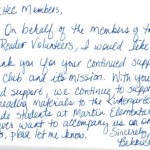 Members,
On behalf of the members of th
Reader Volunteers, I would like
hank you for your continued suppor
club and its mission. With you
d support, we continue to suppo
reading materials to the Kindergarte
de students at Martin Elementar
ever want to accompany us on on
, please let me know.
Sincerely,